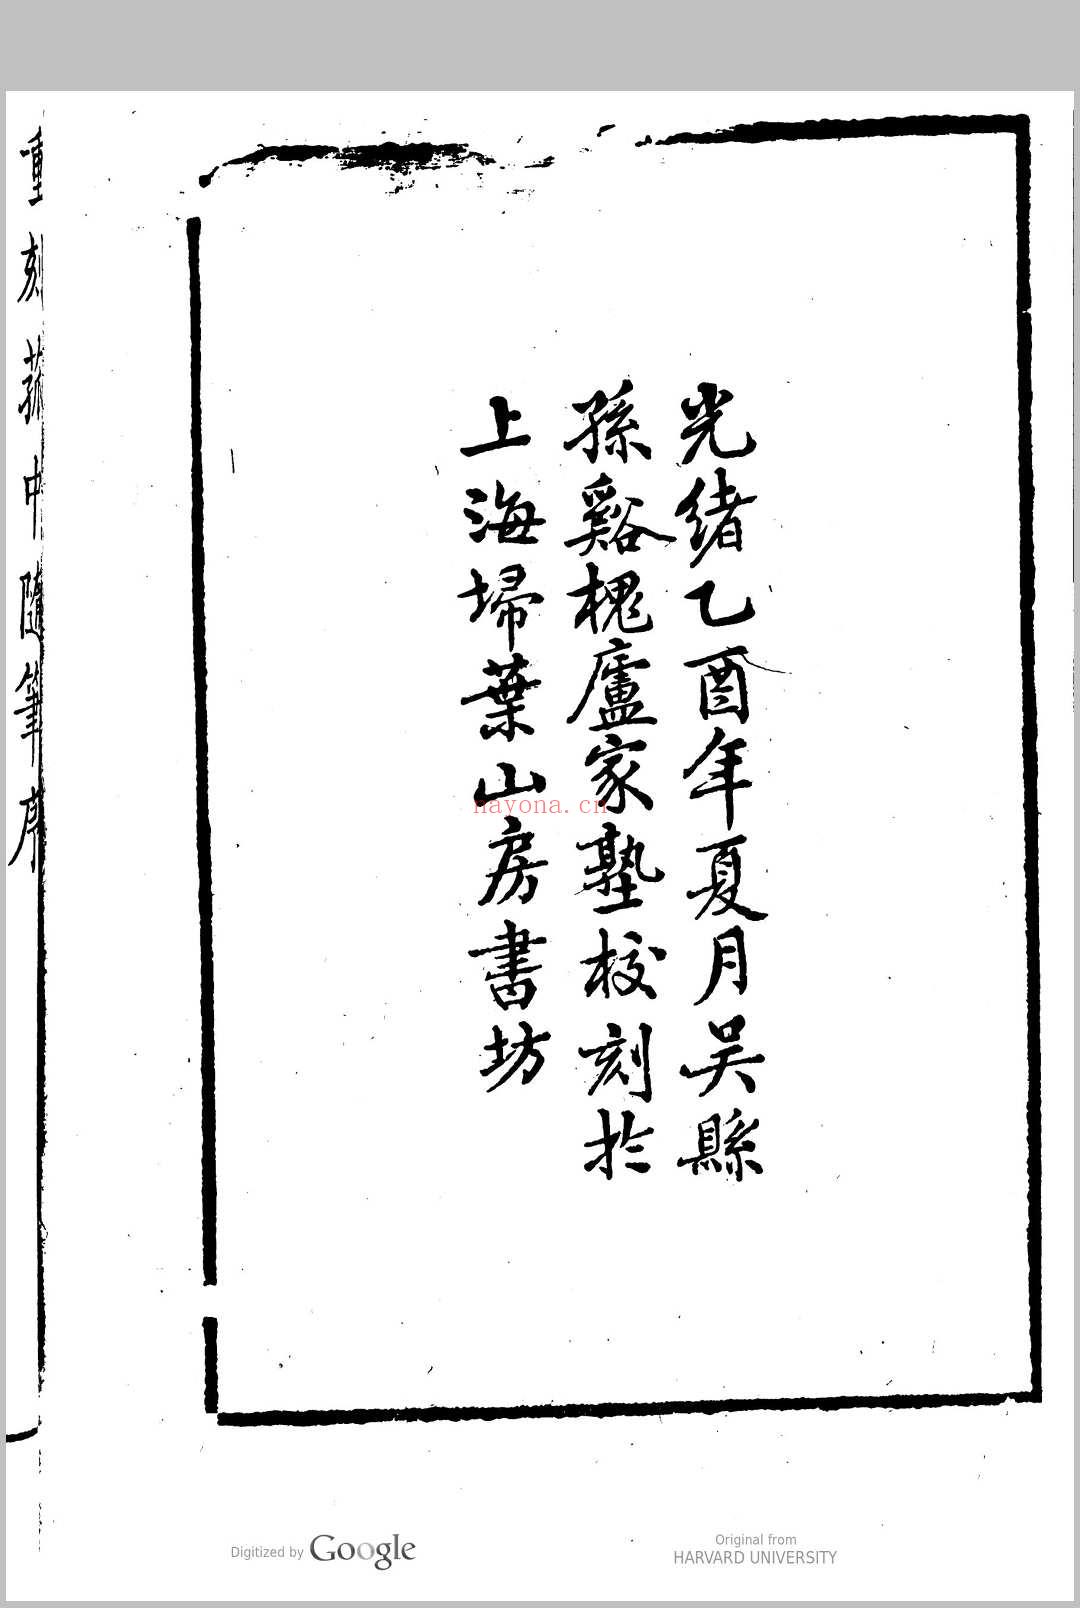 光緒乙酉年夏月吴縣
孫谿槐廬家塾校刻於
上海埽葉山房書坊
重刻菰中隨筆序
nayona.cn
Digitized by Google
Original from
HARVARD UNIVERSITY